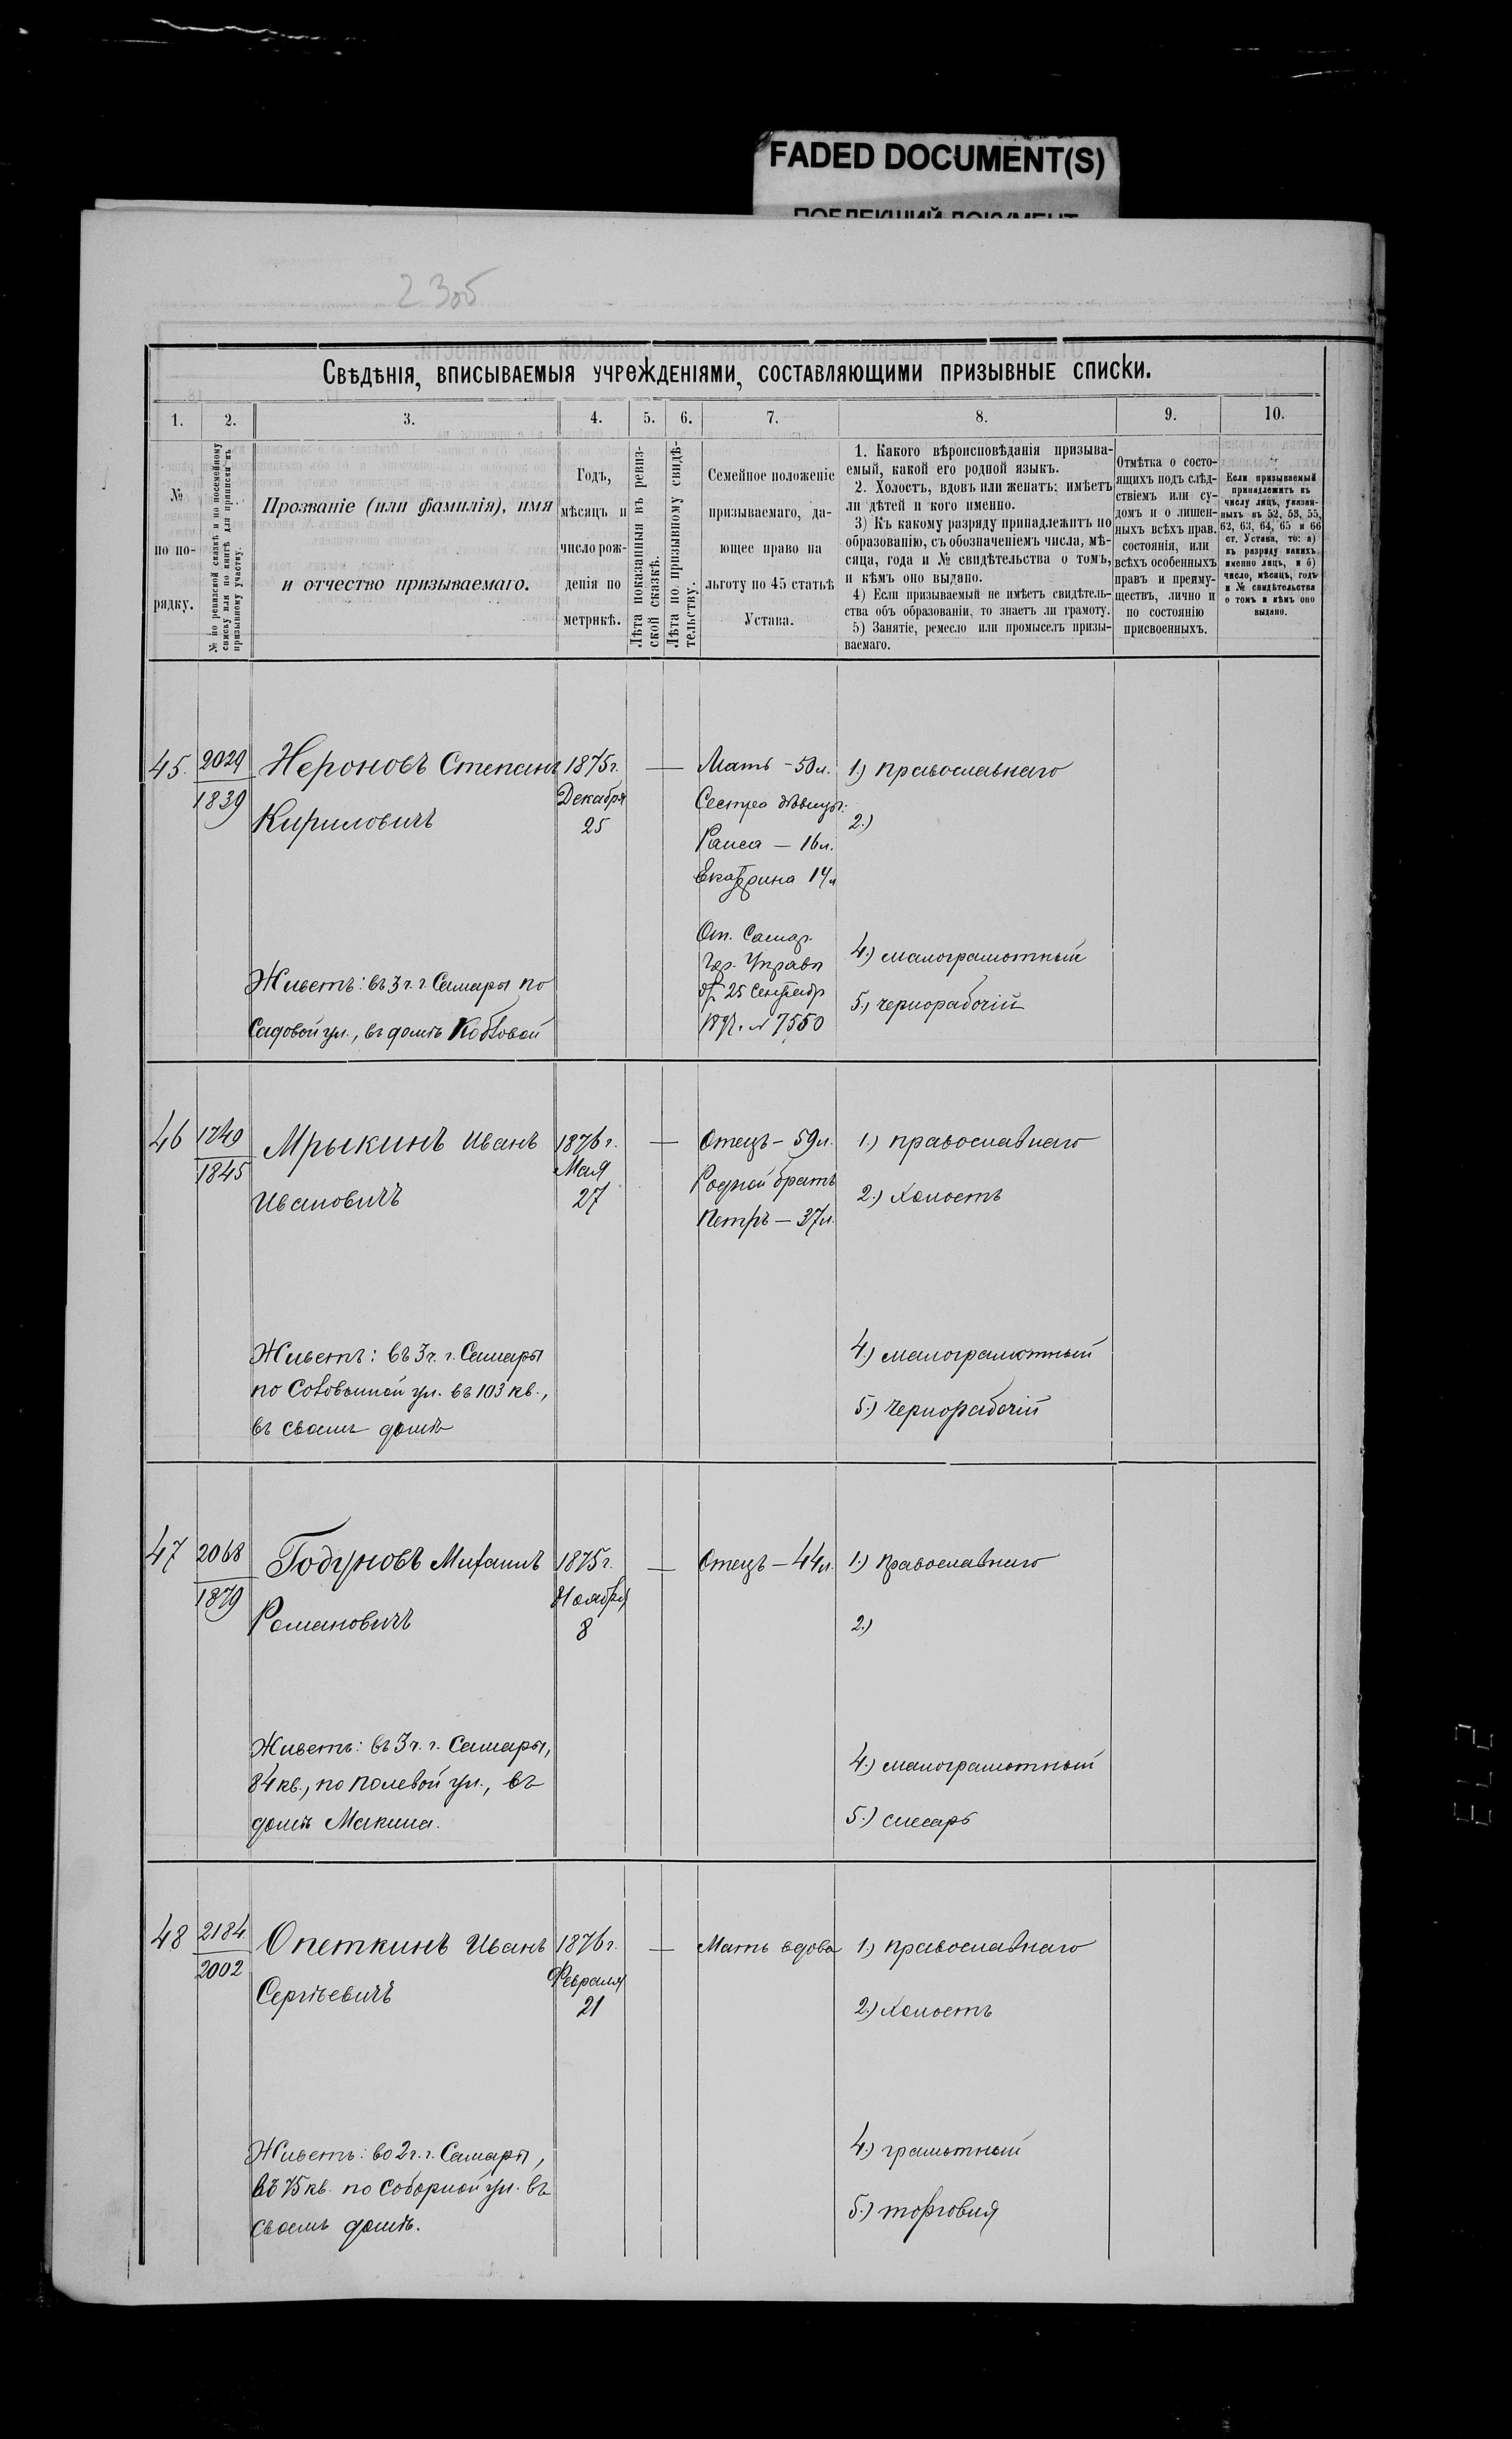 FADED DOCUMENT(S)
ПОБЛЕКШИЙ ДОКУМЕНТ
23об
Свѣдѣнія, вписываемыя учрежденіями, составляющими призывные списки.
1. 2. 3. 4. 5. 6. 7. 8. 9. 10.
№ по по-
рядку.
№ по ревизской сказкѣ и по посемейному
списку или по книгѣ для приписки къ
призывному участку.
Прозваніе (или фамилія), имя
и отчество призываемаго.
Годъ,
мѣсяцъ и
число рож-
денія по
метрикѣ.
Лѣта показанныя въ ревиз-
ской сказкѣ.
Лѣта по призывному свидѣ-
тельству.
Семейное положеніе
призываемаго, да-
ющее право на
льготу по 45 статьѣ
Устава.
1. Какого вѣроисповѣданія призыва-
емый, какой его родной языкъ.
2. Холостъ, вдовъ или женатъ; имѣетъ
ли дѣтей и кого именно.
3) Къ какому разряду принадлежитъ по
образованію, съ обозначеніемъ числа, мѣ-
сяца, года и № свидѣтельства о томъ,
и кѣмъ оно выдано.
4) Если призываемый не имѣетъ свидѣтель-
ства объ образованіи, то знаетъ ли грамоту.
5) Занятіе, ремесло или промыселъ призы-
ваемаго.
Отмѣтка о состо-
ящихъ подъ слѣд-
ствіемъ или су-
домъ и о лишен-
ныхъ всѣхъ прав.
состоянія, или
всѣхъ особенныхъ
правъ и преиму-
ществъ, лично и
по состоянію
присвоенныхъ.
Если призываемый
принадлежитъ къ
числу лицъ, указан-
ныхъ въ 52, 53, 55,
62, 63, 64, 65 и 66
ст. Устава, то: а)
къ разряду какихъ
именно лицъ, и б)
число, мѣсяцъ, годъ
и № свидѣтельства
о томъ и кѣмъ оно
выдано.
45. 2029
1839
Нероновъ Степанъ
Кириловичъ
1875 г.
Декабря
25
—
Мать - 50 л.
Сестра дѣвицы:
Раиса — 16 л.
Екатерина 14 л
От. Самар.
Гор. Управы
25 Сентябр
189 г. № 7550
1.) православнаго
2.)
4.) малограмотный
5.) чернорабочій
Живетъ: въ 3 ч. г. Самары по
Садовой ул., въ домѣ
46 1749
1845
Мрыкинъ Иванъ
Ивановичъ
1876 г.
Мая
27
—
Отецъ - 59 л.
Родной братъ
Петръ — 37 л.
1.) православнаго
2.) холостъ
4.) малограмотный
5.) чернорабочій
Живетъ: въ 3 ч. г. Самары
по ул. въ 103 кв.,
въ своемъ домѣ
47 2068
1879
Годуновъ Михаилъ
Романовичъ
1875 г.
Ноября
8
—
Отецъ — 44 л.
1.) православнаго
2.)
4.) малограмотный
5.) слесарь
Живетъ: въ 3 ч. г. Самары,
84 кв., по Полевой ул., въ
домѣ Макина.
48 2184
2002
Опеткинъ Иванъ
Сергѣевичъ
1876 г.
Февраля
21
—
Мать вдова
1.) православнаго
2.) холостъ
4.) грамотный
5.) торговля
Живетъ: во 2 ч. г. Самары,
въ 75 кв. по Соборной ул. въ
своемъ домѣ.